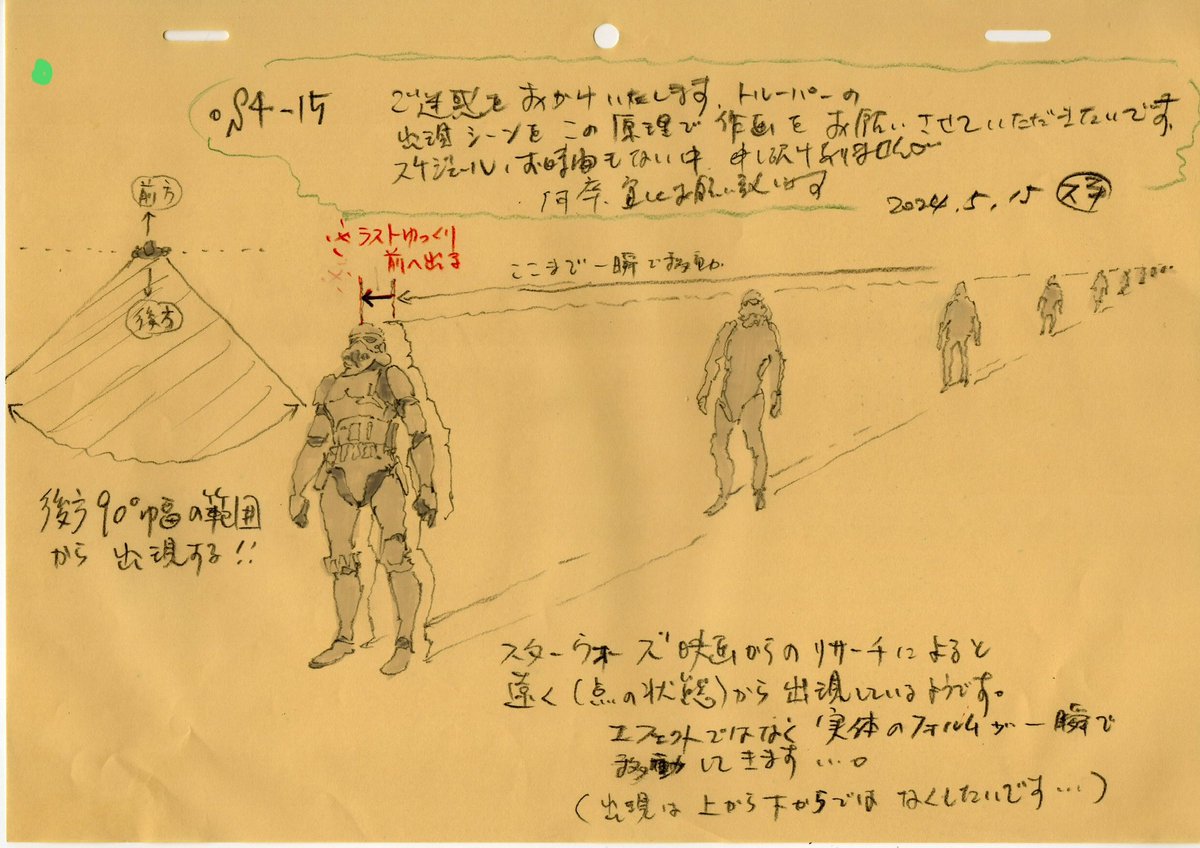 S4-15
ご迷惑をおかけいたします。トルーパーの
出現シーンをこの原理で作画をお願いさせていただきたいです。
スケジュール、お時間もない中、申し訳ありません。
何卒、宜しくお願い致します
2024.5.15
前方
後方
ラストゆっくり
前へ出る
ここまで一瞬で移動
後方90°幅の範囲
から出現する!!
スターウォーズ映画からのリサーチによると
遠く(点の状態)から出現しているようです。
エフェクトではなく実体のフォルムが一瞬で
移動してきます…。
(出現は上から下からではなくしたいです…)